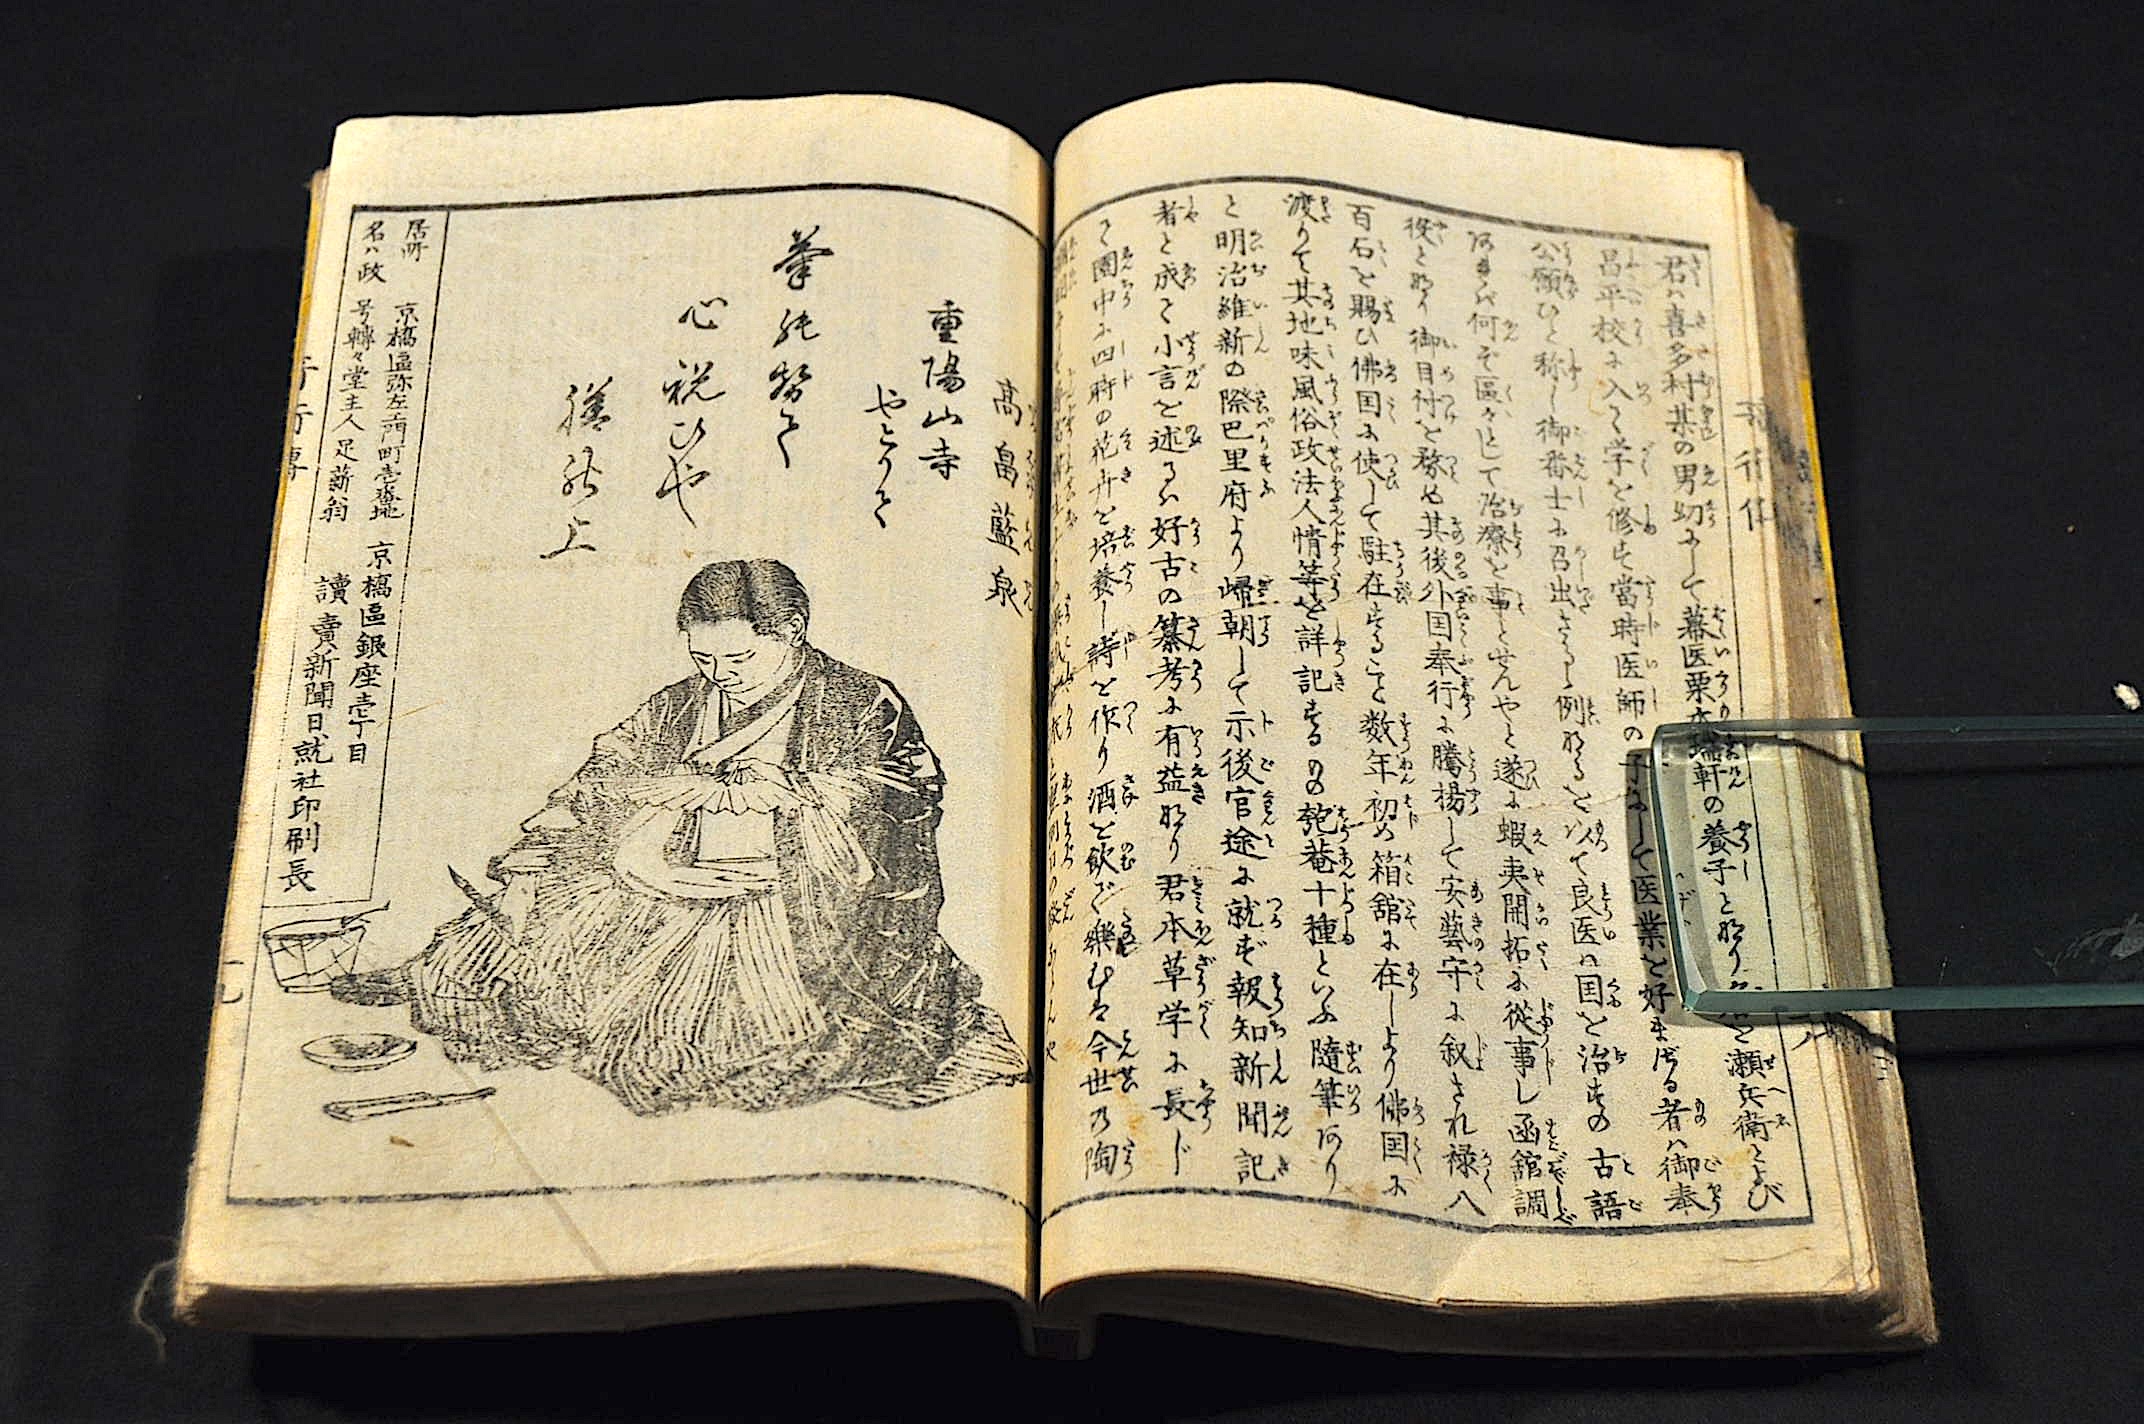 君ハ喜多村某の男幼にして幕医栗本瑞軒の養子となり名を瀬兵衛とよび
昌平校に入て学を修す當時医師の子にして医業を好まざる者ハ御奉
公願ひと称し御番士に召出さるゝ例なるを以て良医ハ国を治すの古語
何ぞ區々として治療を事とせんやと遂に蝦夷開拓に從事し函舘調
役となり御目付を務め其後外国奉行に騰揚して安藝守に叙され禄八
百石を賜ひ佛国に使して駐在すること数年初め箱舘に在しより佛国に
渡りて其地味風俗政法人情等を詳記するの匏菴十種といふ隨筆あり
と明治維新の際巴里府より帰朝して示後官途に就ず報知新聞記
者と成て小言を述るハ好古の纂考に有益なり君本草学に長じ
て園中に四時の花卉を培養し詩を作り酒を飲で樂むは今世の陶
高畠藍泉
重陽山寺
やとりて
心祝ひや
上
居所
京橋區弥左エ門町壱番地
京橋區銀座壱丁目
名ハ政
号轉々堂主人
足薪翁
讀賣新聞日就社印刷長